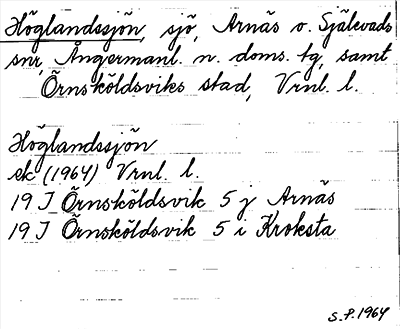 Höglandssjön, sjö, Arnäs o. Själevads
snr, Ångermanl. n. doms. tg, samt
Örnsköldsviks stad, Vrnl. l.
Höglandssjön
ek (1964) Vrnl. l.
19 J Örnsköldsvik 5 j Arnäs
19 J Örnsköldsvik 5 i Kroksta
S.P. 1964